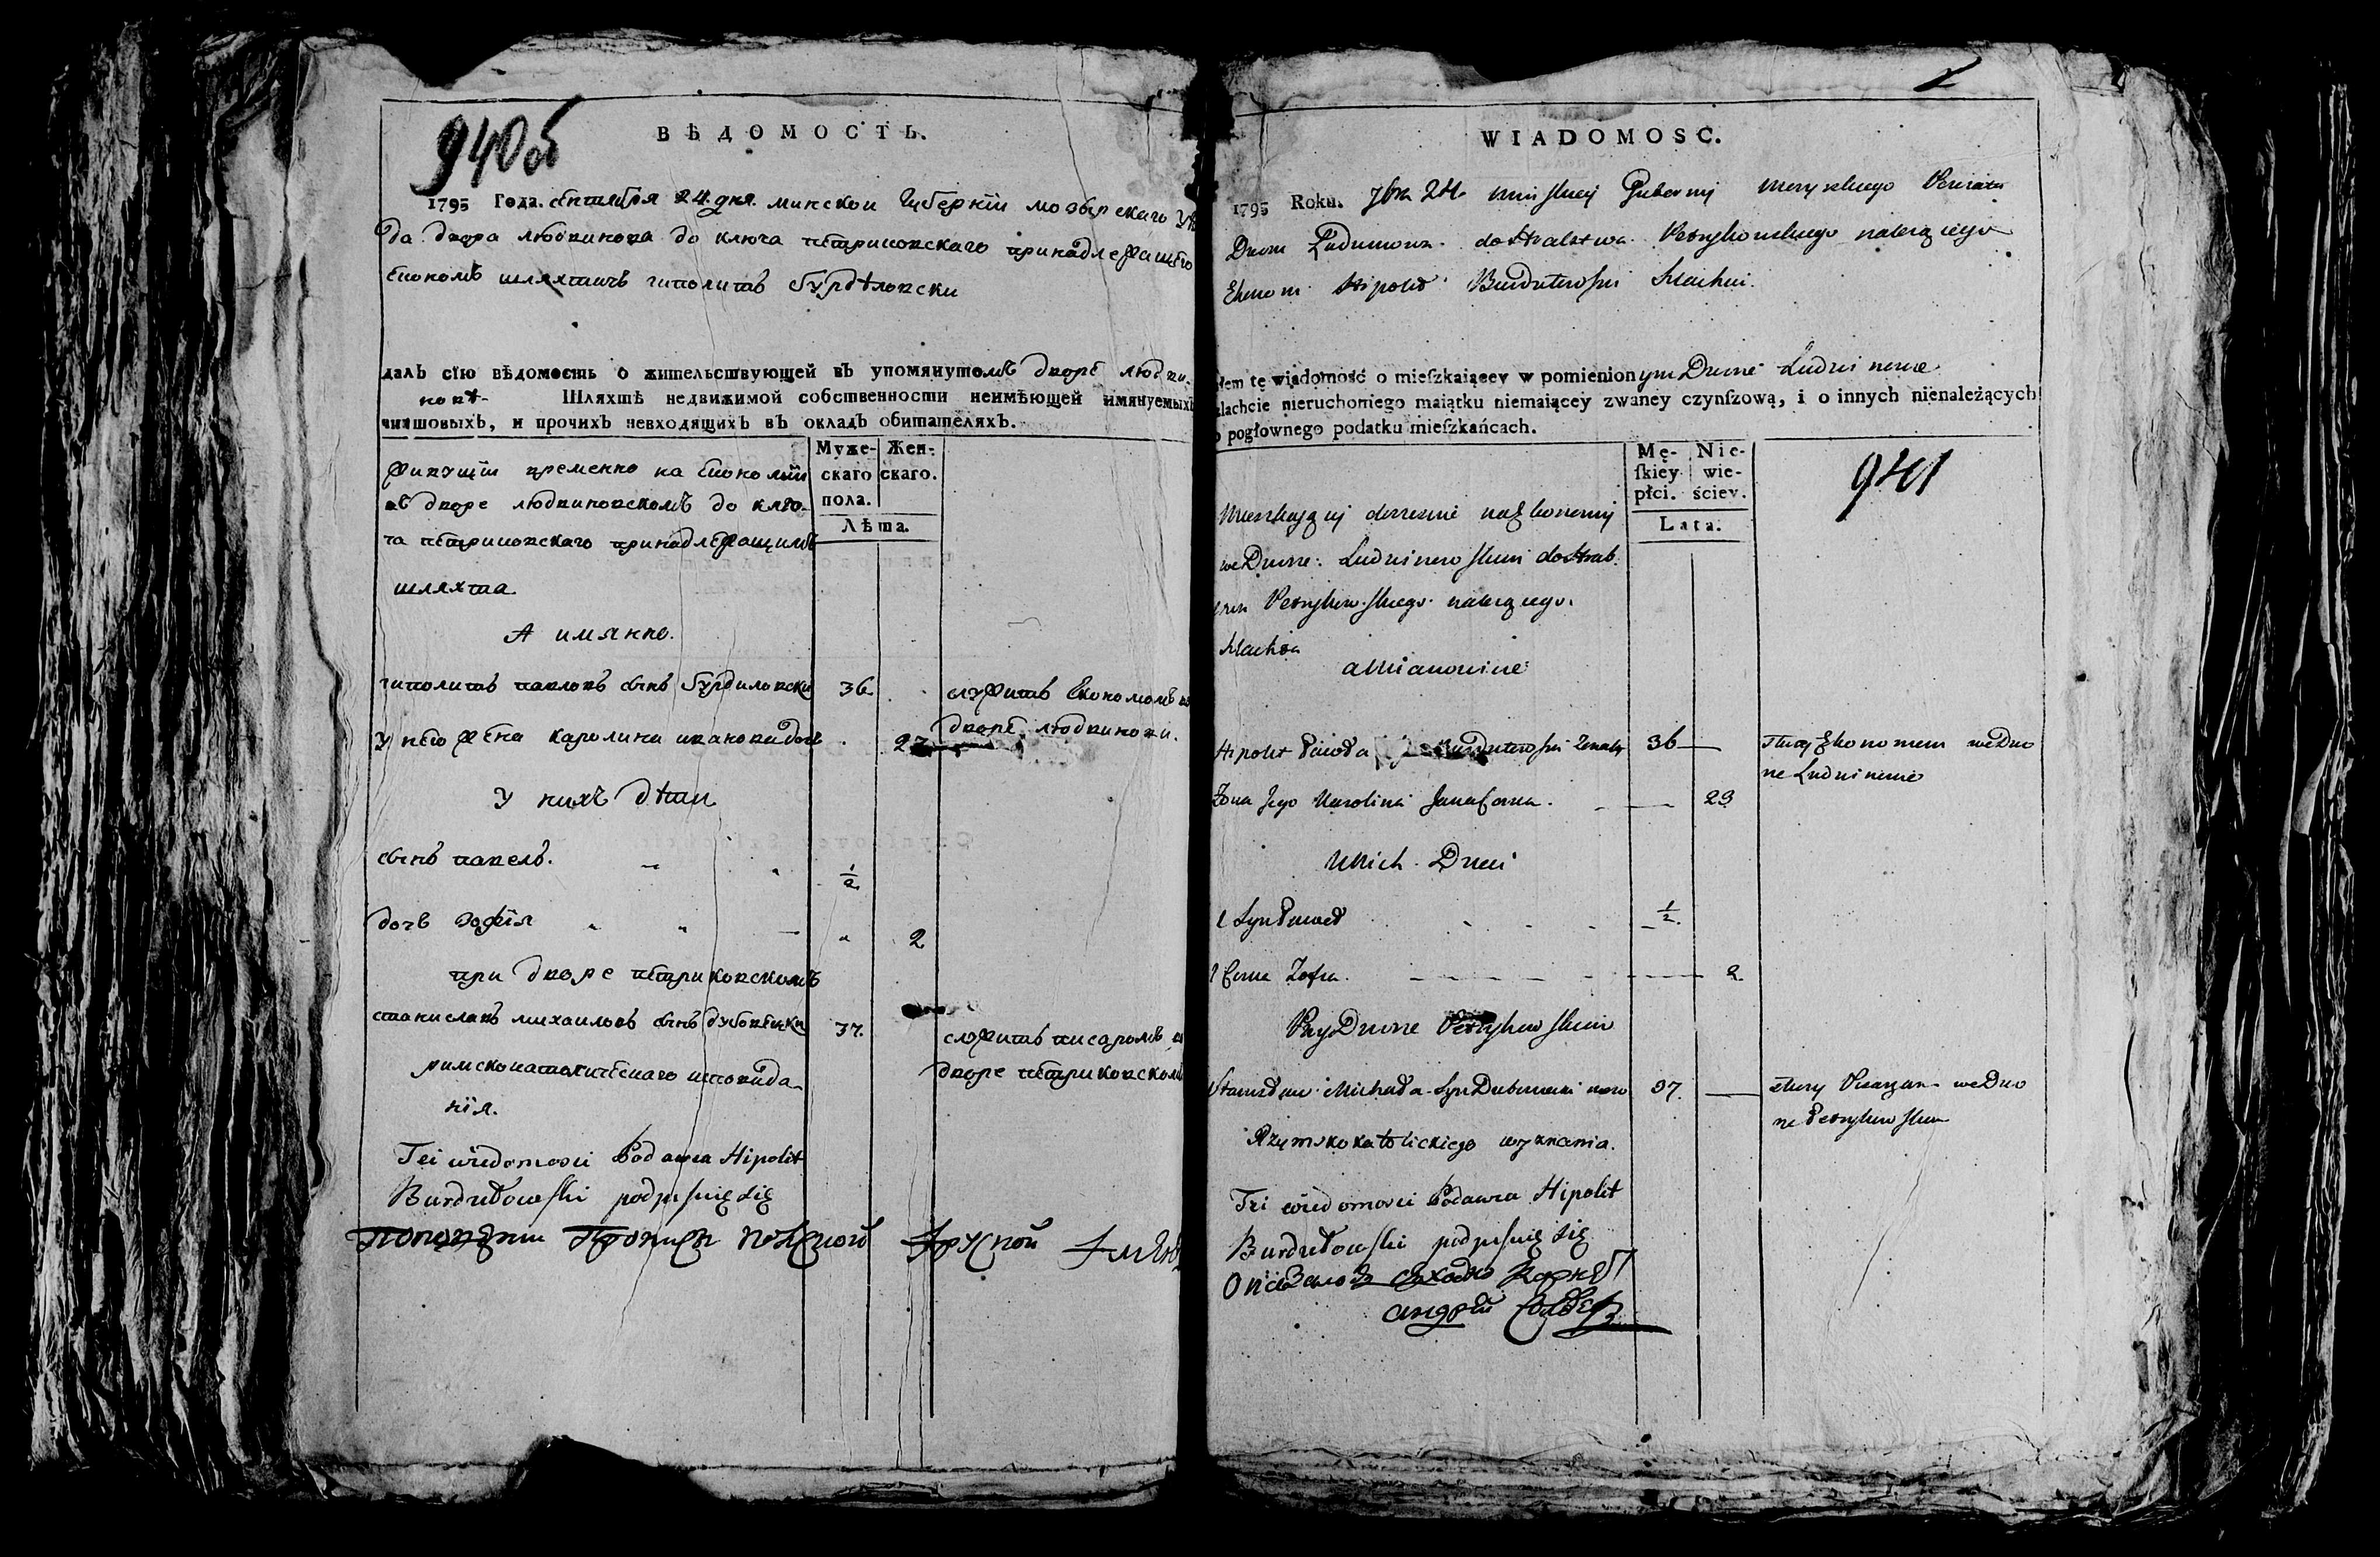 940об
ВѢДОМОСТЬ.
1795 Года. сентября 24. дня. минскои Губернїи мозырскаго уѣ
да двора людвинова до ключа петриковскаго принадлежащего
економъ шляхтичъ гиполитъ бурдѣловски
далъ сїю вѣдомость о жительствующей въ упомянутомъ дворе людви-
новѣ Шляхтѣ недвижимой собственности неимѣющей имянуемыхъ
чиншовыхъ, и прочихъ невходящихъ въ окладъ обитателяхъ.
Муже- Жен-
скаго скаго.
пола.
Лѣта.
живущїи временно на економїи
въ дворе людвиновскомъ до клю-
ча петриковскаго принадлежащимъ
шляхта
А имянно.
гиполитъ павловъ сынъ бурдиловски 36 служитъ економомъ въ
дворе людвинови.
у него жена каролина иванова дочь 2
у нихъ дѣти
сынъ павелъ. 1/2
дочь зофїя 2
при дворе петриковскомъ
станиславъ михаиловъ сынъ 37. служитъ писаромъ в
дворе петриковскомъ
римскокатолическаго исповида-
нїя.
Tei wiedomosci Podawca Hipolit
Burdułowski podpisuię się
WIADOMOSC.
1795 Roku. 7bra 24 minskiey Gubernij Mozyrskiego Powiatu
Dworu Ludwinowa do Petrykowskiego należącego
Ekonom Hipolit Szlachcic
łem tę wiadomość o mieſzkaiącey w pomienionym Dworze Ludwinowie
zlachcie nieruchomego maiątku niemaiącey zwaney czynſzową, i o innych nienależących
o pogłownego podatku mieſzkańcach.
Mę- Nie-
ſkiey wie-
płci. ściey.
Lata.
941
Mieszkający doczesnie na Ekonomij
we Dworze Ludwinowskim do
Petrykowskiego należącego
Szlachta
a Mianowicie
Hipolit Pawła 36 służy Ekonomem we Dwo
rze Ludwinowie
Żona Jego Karolina Jana Corka. 23
U Nich Dzieci
1 Syn Paweł 1/2.
1 Corka Zofia. 2
Przy Dworze Petrykowskim
Stanisław Michała Syn 37. służy Pisarzem we Dwo
rze Petrykowskim
Rzymskokatolickiego wyznania.
Tei wiedomosci Podawca Hipolit
Burdułowski podpisuię się